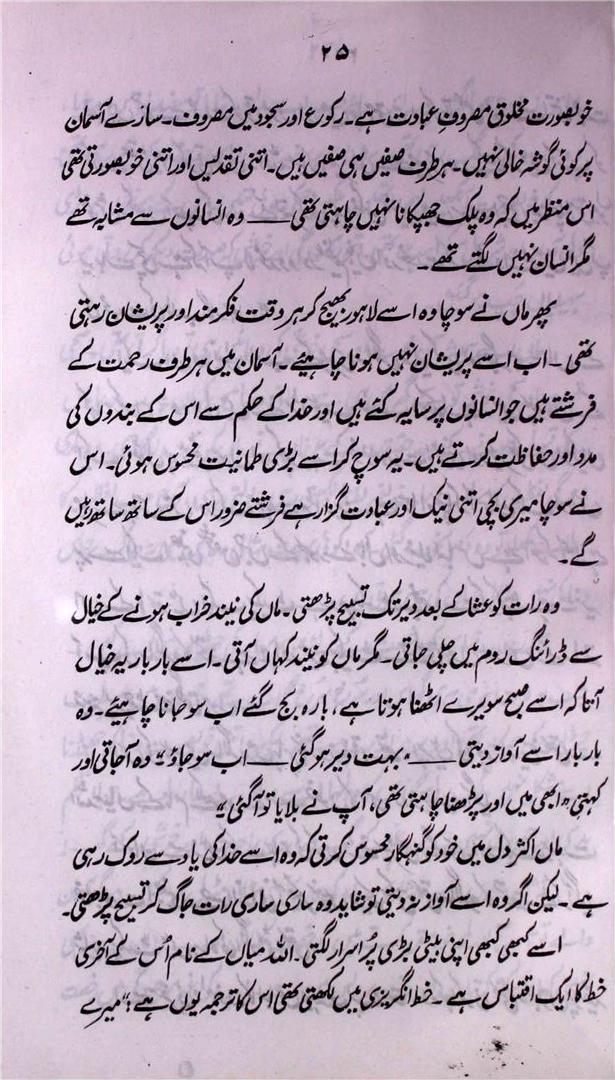 ۲۵
خوبصورت مخلوق مصروفِ عبادت ہے۔ رکوع اور سجود میں مصروف۔ سارے آسمان
پر کوئی گوشہ خالی نہیں۔ ہر طرف صفیں ہی صفیں ہیں۔ اتنی تقدیس اور اتنی خوبصورتی تھی
اس منظر میں کہ وہ پلک جھپکانا نہیں چاہتی تھی —— وہ انسانوں سے مشابہ تھے
مگر انسان نہیں لگتے تھے۔
پھر ماں نے سوچا وہ اسے لاہور بھیج کر ہر وقت فکر مند اور پریشان رہتی
تھی۔ اب اسے پریشان نہیں ہونا چاہیئے۔ آسمان میں ہر طرف رحمت کے
فرشتے ہیں جو انسانوں پر سایہ کئے ہیں اور خدا کے حکم سے اس کے بندوں کی
مدد اور حفاظت کرتے ہیں۔ یہ سوچ کر اسے بڑی طمانیت محسوس ہوئی۔ اس
نے سوچا میری بچی اتنی نیک اور عبادت گزار ہے فرشتے ضرور اس کے ساتھ ساتھ رہیں
گے۔
وہ رات کو عشا کے بعد دیر تک تسبیح پڑھتی۔ ماں کی نیند خراب ہونے کے خیال
سے ڈرائنگ روم میں چلی جاتی۔ مگر ماں کو نیند کہاں آتی۔ اسے بار بار یہ خیال
آتا کہ اسے صبح سویرے اٹھنا ہوتا ہے، بارہ بج گئے اب سو جانا چاہیئے۔ وہ
بار بار اسے آواز دیتی —— "بہت دیر ہو گئی —— اب سو جاؤ" وہ آ جاتی اور
کہتی "ابھی میں اور پڑھنا چاہتی تھی، آپ نے بلایا تو آ گئی"
ماں اکثر دل میں خود کو گنہگار محسوس کرتی کہ وہ اسے خدا کی یاد سے روک رہی
ہے۔ لیکن اگر وہ اسے آواز نہ دیتی تو شاید وہ ساری ساری رات جاگ کر تسبیح پڑھتی۔
اسے کبھی کبھی اپنی بیٹی بڑی پُراسرار لگتی۔ اللہ میاں کے نام اُس کے آخری
خط کا ایک اقتباس ہے۔ خط انگریزی میں لکھتی تھی اس کا ترجمہ یوں ہے: "میرے